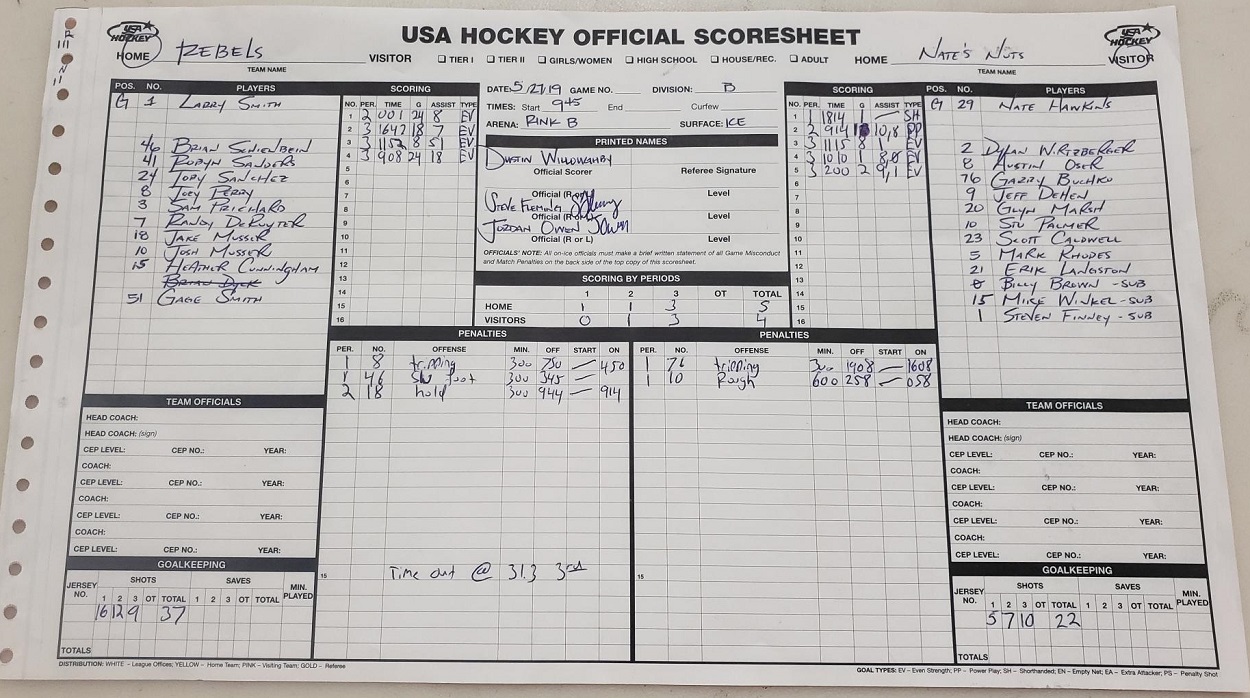 USA HOCKEY OFFICIAL SCORESHEET
USA HOCKEY
HOME REBELS
TEAM NAME
VISITOR ☐ TIER I ☐ TIER II ☐ GIRLS/WOMEN ☐ HIGH SCHOOL ☐ HOUSE/REC. ☐ ADULT HOME
NATE'S NUTS
TEAM NAME
USA HOCKEY
VISITOR
POS. NO. PLAYERS
G 1 LARRY SMITH
46 BRIAN SCHIENBEIN
41 ROBYN SANDERS
24 TORY SANCHEZ
8 JOEY PERRY
3 SAM PRICHARD
7 RANDY DERUYTER
18 JAKE MUSSER
10 JOSH MUSSER
15 HEATHER CUNNINGHAM
BRIAN DYCK
51 GAGE SMITH
SCORING
NO. PER. TIME G ASSIST TYPE
1 2 001 24 8 EV
2 3 1647 18 7 EV
3 3 1152 8 51 EV
4 3 908 24 18 EV
5
6
7
8
9
10
11
12
13
14
15
16
DATE 5/27/19 GAME NO. DIVISION: B
TIMES: Start 945 End Curfew
ARENA: RINK B SURFACE: ICE
PRINTED NAMES
DUSTIN WILLOUGHBY
Official Scorer Referee Signature
Official (R or L) Level
STEVE FLEMING
Official (R or L) Level
JORDAN OWEN
Official (R or L) Level
OFFICIALS' NOTE: All on-ice officials must make a brief written statement of all Game Misconduct
and Match Penalties on the back side of the top copy of this scoresheet.
SCORING BY PERIODS
1 2 3 OT TOTAL
HOME 1 1 3 5
VISITORS 0 1 3 4
SCORING
NO. PER. TIME G ASSIST TYPE
1 1 1814 1 — SH
2 2 914 10,8 PP
3 3 1115 8 1 EV
4 3 1010 1 8 EV
5 3 200 2 9,1 EV
6
7
8
9
10
11
12
13
14
15
16
POS. NO. PLAYERS
G 29 NATE HAWKINS
2 DYLAN WRITZBERGER
8 AUSTIN OSER
76 GARRY BUCHKO
9 JEFF DEHEN
20 GLYN MARSH
10 STU PALMER
23 SCOTT CALDWELL
5 MARK RHODES
21 ERIK LANGSTON
BILLY BROWN -SUB
15 MIKE WINKEL -SUB
1 STEVEN FINNEY -SUB
PENALTIES
PER. NO. OFFENSE MIN. OFF START ON
1 8 tripping 300 750 — 450
1 46 slew foot 300 345 —
2 18 hold 300 944 — 914
15 Time out @ 31.3 3rd
PENALTIES
PER. NO. OFFENSE MIN. OFF START ON
1 76 tripping 300 1908 — 1608
1 10 Rough 600 258 — 058
15
TEAM OFFICIALS
HEAD COACH:
HEAD COACH: (sign)
CEP LEVEL: CEP NO.: YEAR:
COACH:
CEP LEVEL: CEP NO.: YEAR:
COACH:
CEP LEVEL: CEP NO.: YEAR:
COACH:
CEP LEVEL: CEP NO.: YEAR:
GOALKEEPING
JERSEY NO. SHOTS SAVES MIN. PLAYED
1 2 3 OT TOTAL 1 2 3 OT TOTAL
16 12 9 37
TOTALS
TEAM OFFICIALS
HEAD COACH:
HEAD COACH: (sign)
CEP LEVEL: CEP NO.: YEAR:
COACH:
CEP LEVEL: CEP NO.: YEAR:
COACH:
CEP LEVEL: CEP NO.: YEAR:
COACH:
CEP LEVEL: CEP NO.: YEAR:
GOALKEEPING
JERSEY NO. SHOTS SAVES MIN. PLAYED
1 2 3 OT TOTAL 1 2 3 OT TOTAL
5 7 10 22
TOTALS
DISTRIBUTION: WHITE – League Offices; YELLOW – Home Team; PINK – Visiting Team; GOLD – Referee
GOAL TYPES: EV – Even Strength; PP – Power Play; SH – Shorthanded; EN – Empty Net; EA – Extra Attacker; PS – Penalty Shot